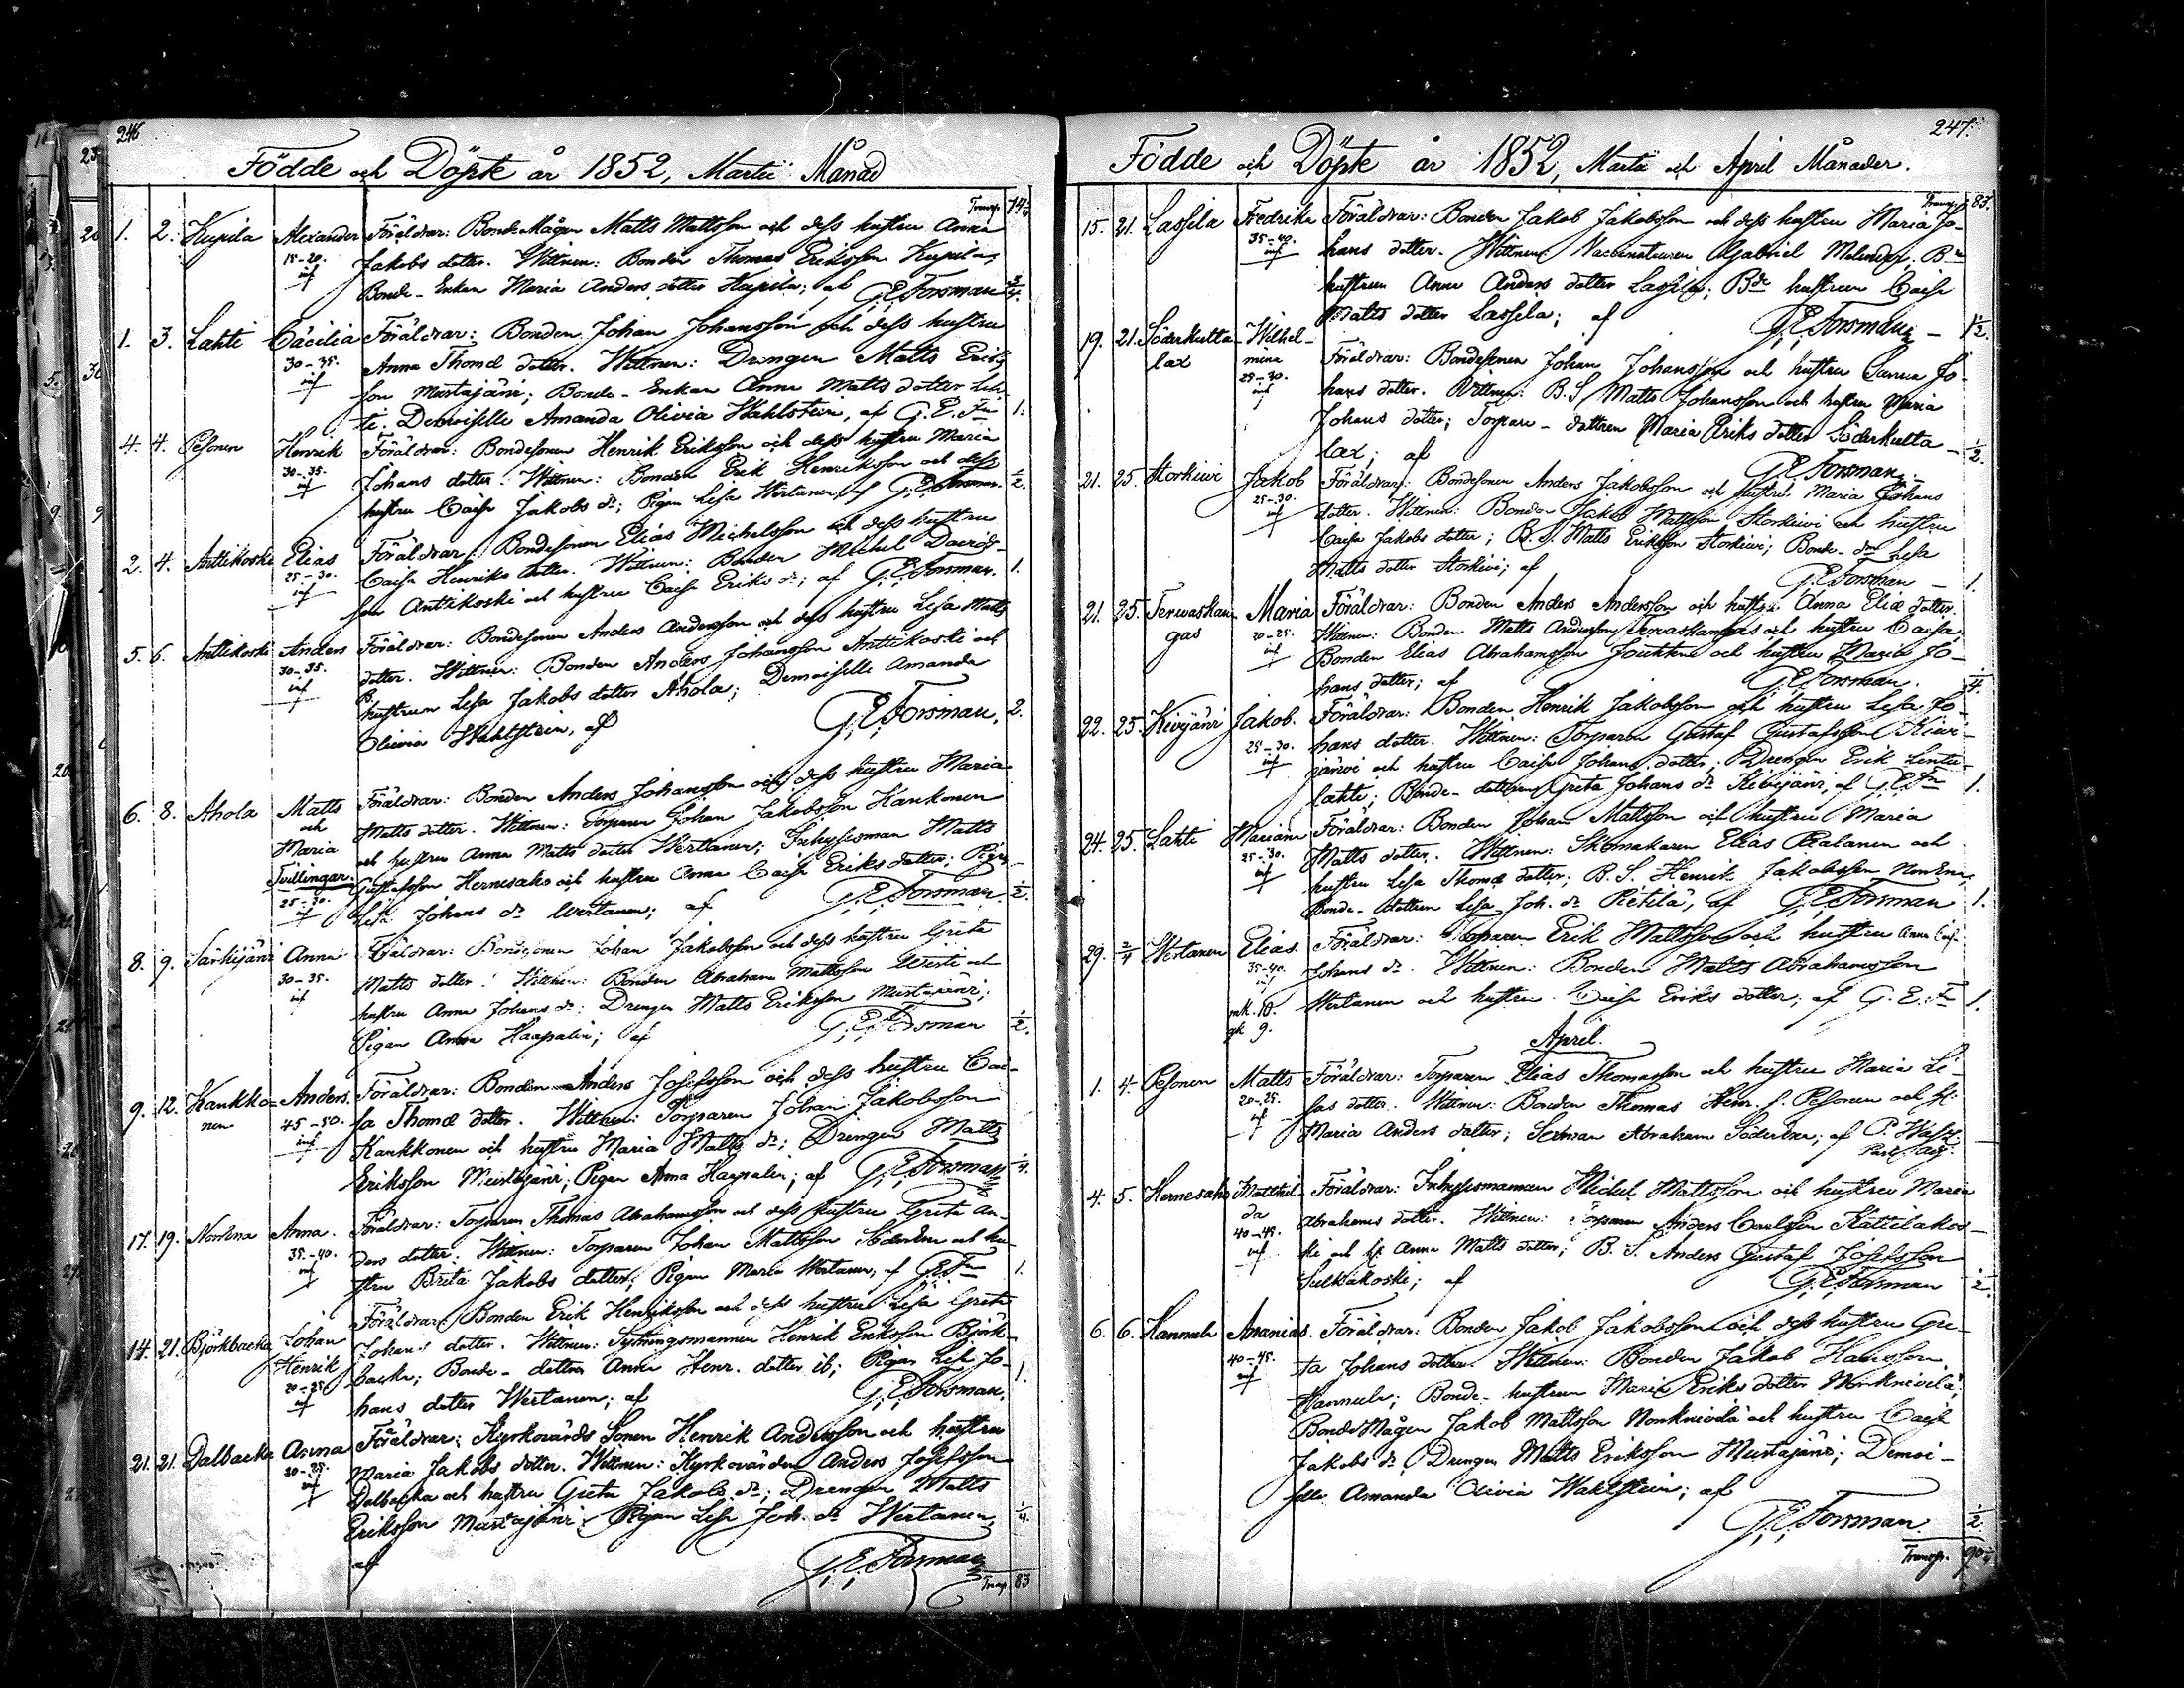 246
Födde och Döpte år 1852, Martii Månad
Transp. 74 1/4
1. 2. Kupila Alexander Föräldrar: BondeMågen Matts Mattsson och dess hustru Anna
15-20. Jakobs dotter. Wittnen: Bonden Thomas Eriksson Kupila;
inf Bonde-Enkan Maria Anders dotter Kupila; af G.E. Forsman
1. 3. Lahti Cäcilia Föräldrar: Bonden Johan Johansson och dess hustru
30-35. Anna Thomæ dotter. Wittnen: Drengen Matts Eriks-
inf son Mustajärvi; Bonde-Enkan Anna Matts dotter Lah-
ti. Demoiselle Amanda Olivia Wahlstein, af G.E. Fn 1.
4. 4. Pesonen Henrik Föräldrar: Bondesonen Henrik Eriksson och dess hustru Maria
30-35. Johans dotter. Wittnen: Bonden Erik Henriksson och dess
inf hustru Caisa Jakobs dr; Pigan Lisa Wertanen, af G.E. Forsman. 1/2.
2. 4. Anttikoski Elias Föräldrar: Bondesonen Elias Michelsson och dess hustru
25-30. Caisa Henriks dotter. Wittnen: Bonden Michel Davids-
inf son Anttikoski och hustru Caisa Eriks dr; af G.E. Forsman. 1.
5. 6. Anttikoski Anders Föräldrar: Bondesonen Anders Andersson och dess hustru Lisa Matts
30-35. dotter. Wittnen: Bonden Anders Johansson Anttikoski och
inf hustrun Lisa Jakobs dotter Ahola; Demoiselle Amanda
Olivia Wahlstein, af G.E. Forsman. 2.
6. 8. Ahola Matts Föräldrar: Bonden Anders Johansson och dess hustru Maria
och Matts dotter. Wittnen: Torparen Johan Jakobsson Kankonen
Maria och hustru Anna Matts dotter Wertanen; Inhysisman Matts
Tvillingar. Gustafsson Hernesaho och hustru Anna Caisa Eriks dotter; Pigan
25-30. Johans dr Wertanen; af G.E. Forsman. 1/2.
inf
8. 9. Särkijärvi Anna Föräldrar: Bondesonen Johan Jakobsson och dess hustru Greta
30-35. Matts dotter. Wittnen: Bonden Abraham Mattsson Wirti och
inf hustru Anna Johans dr; Drengen Matts Eriksson Mustajärvi;
Pigan Anna Haapalin; af G.E. Forsman 1/2.
9. 12. Kankko- Anders. Föräldrar: Bonden Anders Josefsson och dess hustru Cai-
nen 45-50. sa Thomæ dotter. Wittnen: Torparen Johan Jakobsson
inf Kankkonen och hustru Maria Matts dr; Drengen Matts
Eriksson Mustajärvi; Pigan Anna Haapalin; af G.E. Forsman 1/4.
17. 19. Norlena Anna. Föräldrar: Torparen Thomas Abrahamsson och dess hustru Greta An-
35-40. ders dotter. Wittnen: Torparen Johan Mattsson och hu-
inf stru Brita Jakobs dotter; Pigan Maria Wertanen, af G.E. Fn 1.
14. 21. Björkbacka Johan Föräldrar: Bonden Erik Henriksson och dess hustru Lisa Greta
Henrik Johans dotter. Wittnen: Sytningsmannen Henrik Eriksson Björk-
20-25 backa; Bonde-dottren Anna Henr. dotter ib; Pigan Lisa Jo-
inf hans dotter Wertanen; af G.E. Forsman. 1.
21. 21. Dalbacka Anna Föräldrar: Kyrkovärds Sonen Henrik Andersson och hustru
20-25. Maria Jakobs dotter. Wittnen: Kyrkovärden Anders Josefsson
inf Dalbacka och hustru Greta Jakobs dr; Drengen Matts
Eriksson Mustajärvi; Pigan Lisa Joh. dr Wertanen, 1/4.
af G.E. Forsman
Transp. 83
247.
Födde och Döpte år 1852, Martii och April Månader.
Transp. 83.
15. 21. Lassila Fredrika Föräldrar: Bonden Jakob Jakobsson och dess hustru Maria Jo-
35-40. hans dotter. Wittnen: Gabriel
inf hustrun Anna Anders dotter Lassila; hustrun Caisa
Matts dotter Lassila; af G.E. Forsman
19. 21. Söderkulta- Wilhel- Föräldrar: Bondesonen Johan Johansson och hustru Sanna Jo-
lax mina hans dotter. Wittnen: B.S. Matts Johansson och hustru Maria
25-30. Johans dotter; Torpare-dottren Maria Eriks dotter Söderkulta-
inf lax; af G.E. Forsman 1/2.
21. 25. Storkiwi Jakob Föräldrar: Bondesonen Anders Jakobsson och hustru Maria Johans
25-30. dotter. Wittnen: Bonden Jakob Mattsson Storkiwi och hustru
inf Caisa Jakobs dotter; B.S. Matts Eriksson Storkiwi; Bonde- Lisa
Matts dotter Storkiwi; af G.E. Forsman 1.
21. 25. Terwaskan- Maria Föräldrar: Bonden Anders Andersson och hustru Anna Eliæ dotter.
gas 20-25. Wittnen: Bonden Matts Andersson Terwaskangas och hustru Caisa;
inf Bonden Elias Abrahamsson och hustru Maria Jo-
hans dotter; af G.E. Forsman.
22. 25. Kivijärvi Jakob. Föräldrar: Bonden Henrik Jakobsson och hustru Lisa Jo-
25-30. hans dotter. Wittnen: Torparen Gustaf Gustafsson Kiwi-
inf järvi och hustru Caisa Johans dotter; Drengen Erik Lintu-
lahti; Bonde-dottren Greta Johans dr Kivijärvi, af G.E. Fn 1.
24. 25. Lahti Mariana Föräldrar: Bonden Johan Mattsson och hustru Maria
25-30. Matts dotter. Wittnen: Skomakaren Elias och
inf hustru Lisa Thomæ dotter; B.S. Henrik Jakobsson
Bonde-dottren Lisa Joh. dr Pietilä, af G.E. Forsman 1.
29. 2/4 Wertanen Elias. Föräldrar: Torparen Erik Mattsson och hustru Anna
35-40. Johans dr. Wittnen: Bonden Matts Abrahamsson
inf Wertanen och hustru Caisa Eriks dotter; af G.E. Fn 1.
mk. 10.
qk 9.
April.
1. 4. Pesonen Matts Föräldrar: Torparen Elias Thomasson och hustru Maria Li-
20-25. sas dotter. Wittnen: Bonden Thomas Henr. s. Pesonen och h:
inf Maria Anders dotter; Sexman Abraham af
4. 5. Hernesaho Mathil- Föräldrar: Inhysismannen Michel Mattsson och hustru Maria
da Abrahams dotter. Wittnen: Torparen Anders Carlsson Kattilakos-
40-45. ki och h. Anna Matts dotter; B.S. Anders Gustaf Josefsson
inf Sulkakoski; af G.E. Forsman 1/2.
6. 6. Hannula Ananias. Föräldrar: Bonden Jakob Jakobsson och dess hustru Gre-
40-45. ta Johans dotter. Wittnen: Bonden Jakob Hansson
inf Hannula; Bonde-hustrun Maria Eriks dotter Wonknivilä;
BondeMågen Jakob Mattsson Wonknivilä och hustru Caisa
Jakobs dr; Drengen Matts Eriksson Mustajärvi; Demoi-
selle Amanda Olivia Wahlstein; af
G.E. Forsman. 1/2
Transp. 90 1/4